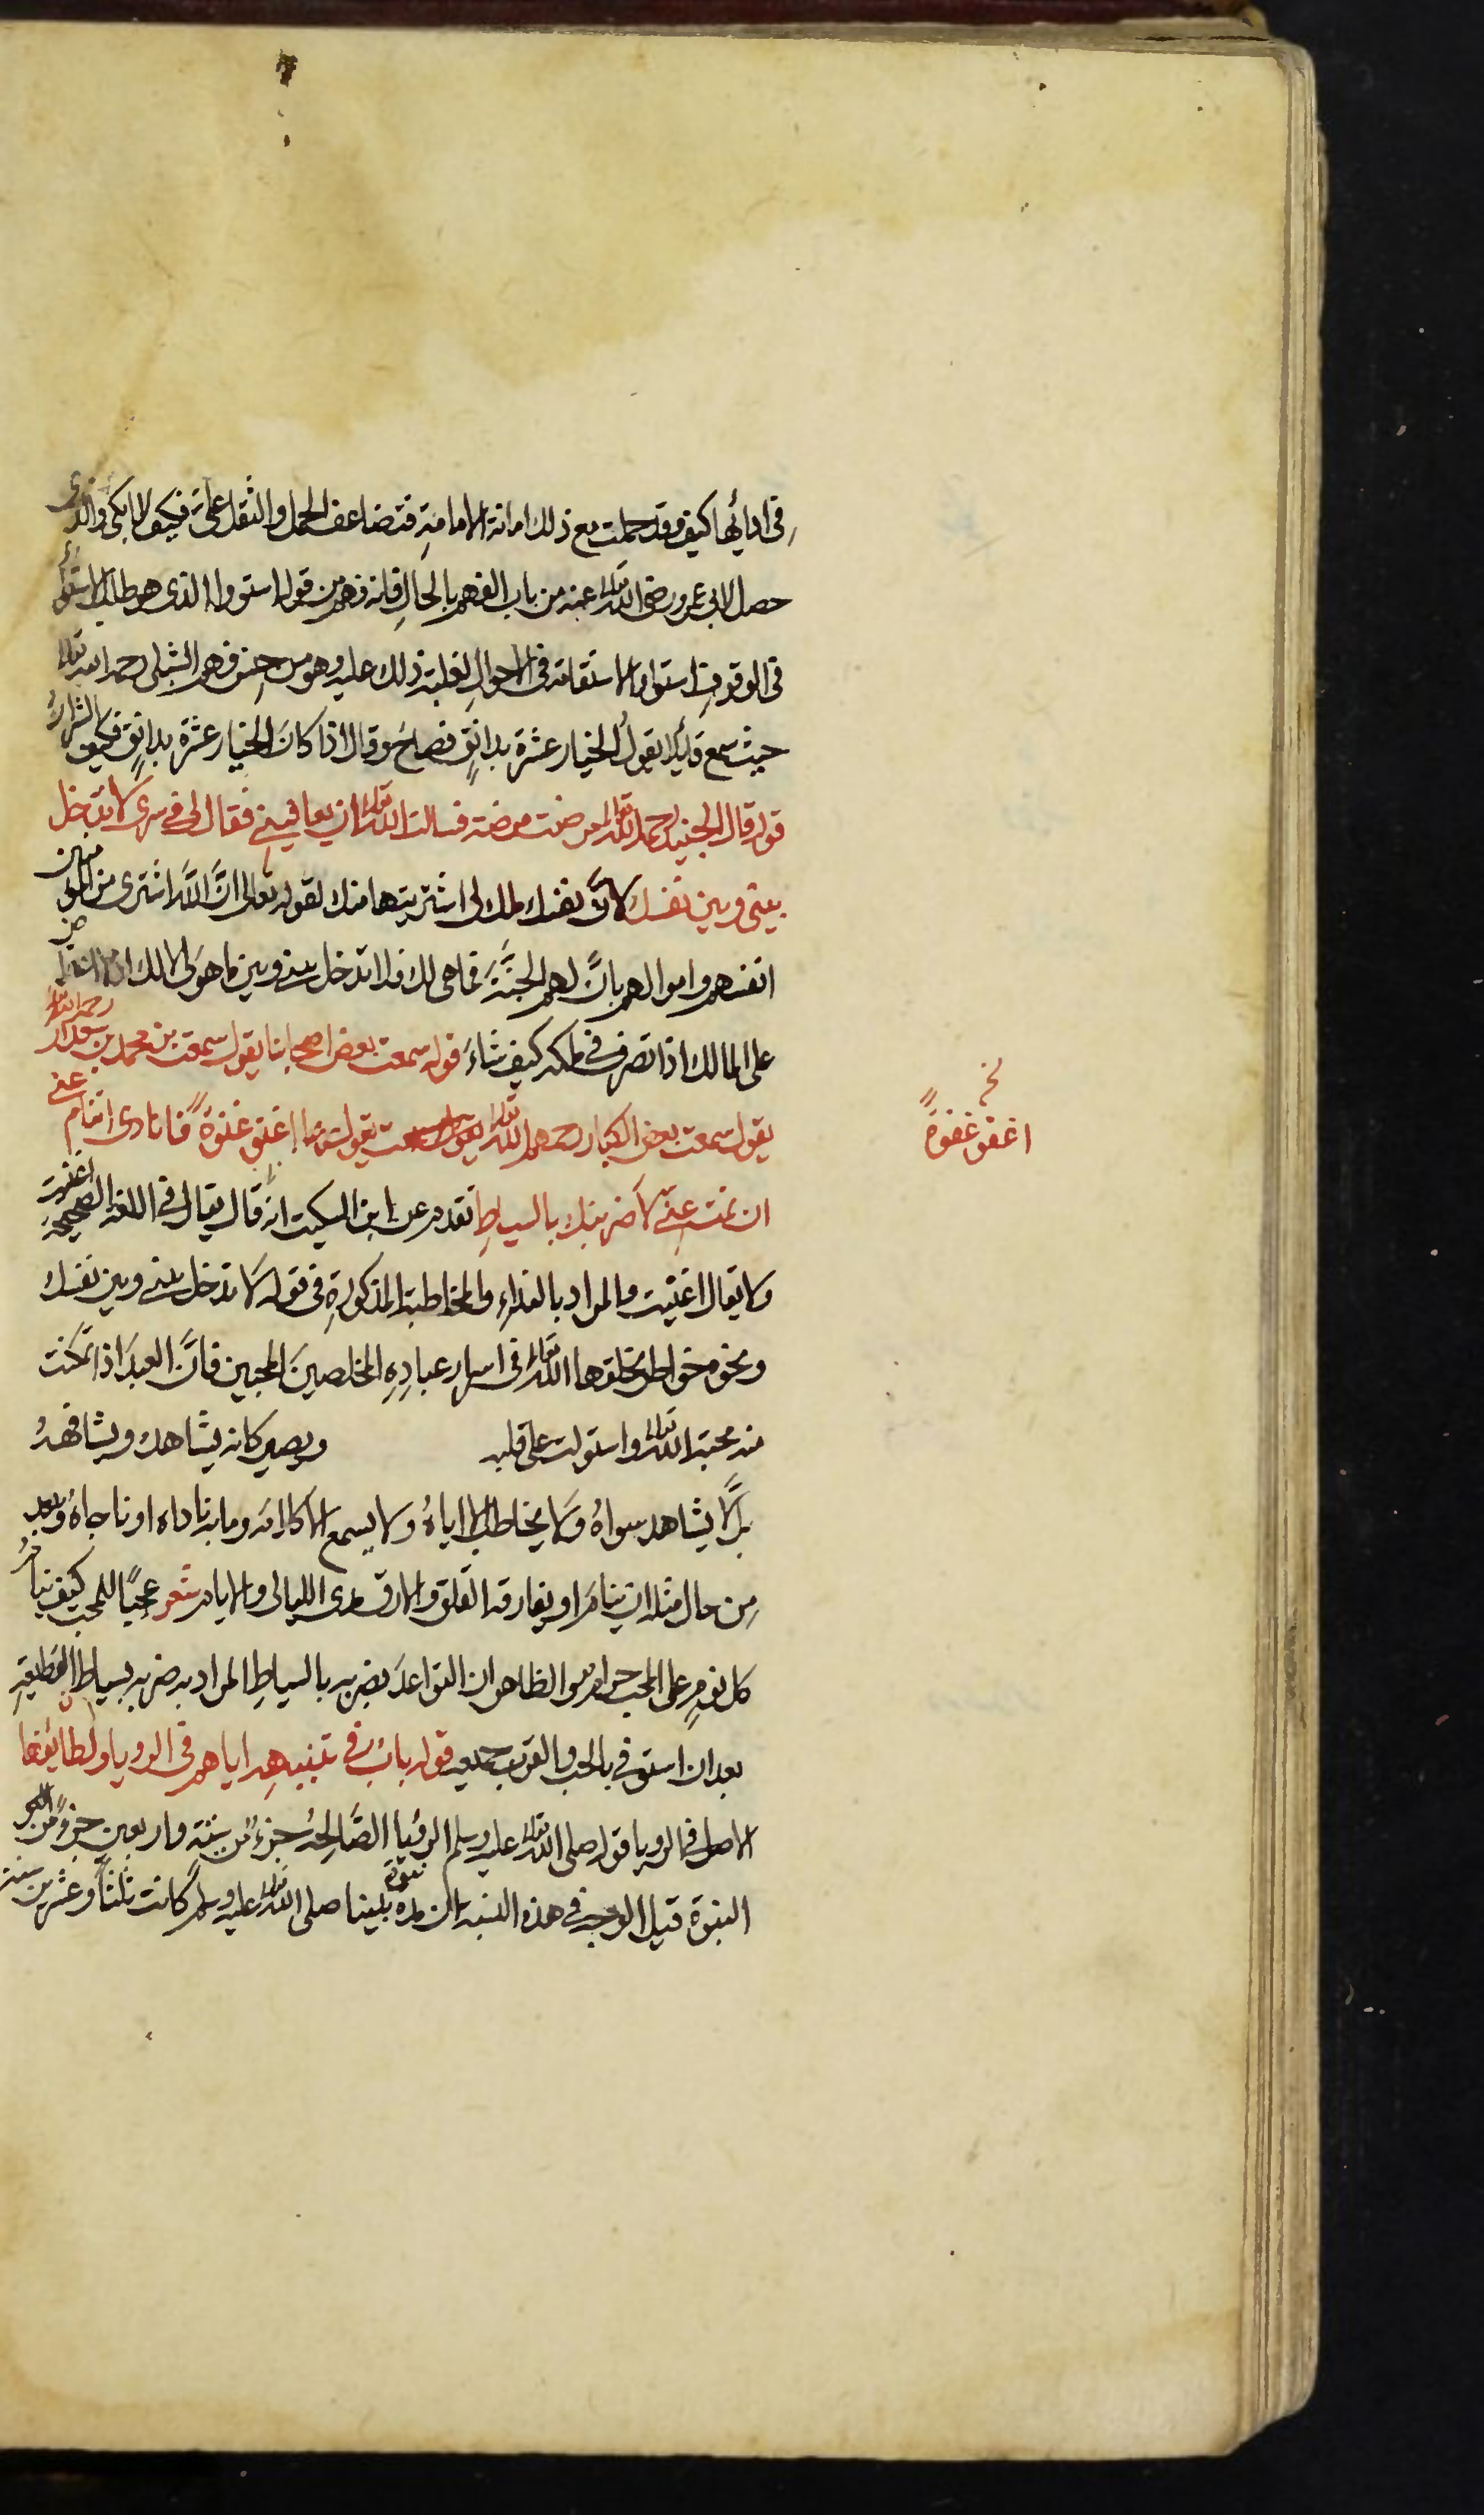 في ادائها كيف وقد حملت مع ذلك امانة الامامة فتضاعف الحمل والثقل علىّ فكيف لا ابكي والذى
حصل لابي عمرو رضى الله تعالى عنه من باب الفهم بالحال فانه فهم من قوله استووا الذى هو طلب الاستواء
في الوقوف استواء الاستقامة في الاحوال لغلبة ذلك عليه وهو من جنس فهم الشبلي رحمه الله تعالى
حيث سمع قائلا يقول الخيار عشرة بدانق فصاح وقال اذا كان الخيار عشرة بدانق فكيف الشرار
قوله قال الجنيد رحمه الله تعالى مرضت مرضة فسالت الله تعالى ان يعافيني فقال لى في سرى لا تدخل
بيني وبين نفسك لان نفسك ملك لى اشتريتها منك لقوله تعالى انّ اللّه اشترى من المومنين
انفسهم واموالهم بانّ لهم الجنّة فما هى لك فلا تدخل بيني وبين ما هو لى لا لك
على المالك اذا تصرف في ملكه كيف شاء قوله سمعت بعض اصحابنا يقول سمعت بن محمد بن سعدان رحمه الله تعالى
يقول سمعت بعض الكبار رحمهم الله تعالى يقول سمعت يقول يوما اغفو غفوة فانادى اتنام عني
ان نمت عني لاضربنك بالسياط تقدم عن ابن السكيت انه قال يقال في اللغة الصحيحة اغفيت
ولا يقال اغفيت والمراد بالنداء والمخاطبة المذكورة في قوله لا تدخل بيني وبين نفسك
ونحوه خواطر يخلقها الله تعالى في اسرار عباده المخلصين المحبين فانّ العبد اذا تمكنت
منه محبة الله تعالى واستولت على قلبه ويصير كانه يشاهده ويشافهه
بل لا يشاهد سواه ولا يخاطب الا اياه ولا يسمع الا كلامه وما به ناداه او ناجاه وبعيد
من حال مثله ان ينام او يفارقه القلق والارق مدى الليالى والايام شعر عجبًا للمحب كيف ينام
كل نوم على المحب حرام الظاهر ان التواعد بضربه بالسياط المراد به ضربه بسياط القطيعة
بعد ان استوفي بالحب والقرب جميعه قوله باب في تنبيههم اياهم في الرويا ولطائفها
الاصل في الرويا قوله صلى الله تعالى عليه وسلم الرؤيا الصّالحة جزء من ستة واربعين جزءً من
النبوة قيل الوجه في هذه النسبة ان مدة نبوة نبينا صلى الله تعالى عليه وسلم كانت ثلثا وعشرين سنة
نخ
اغفو غفوة